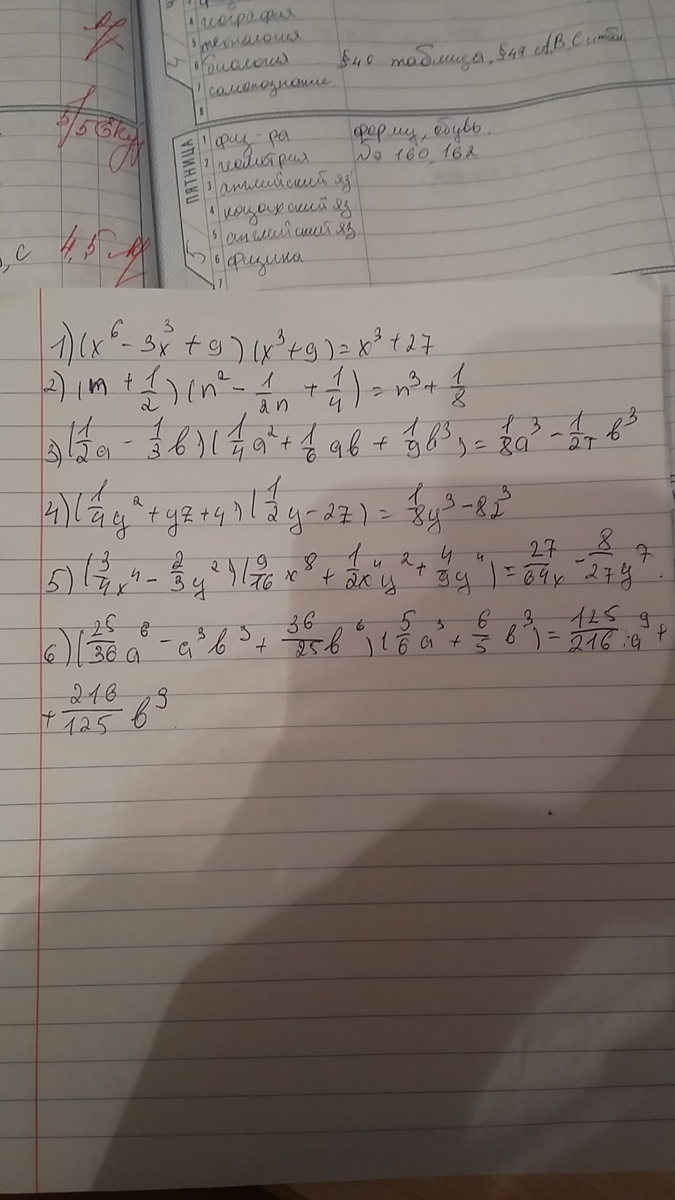 4 география
5 технология
6 биология §40 таблица, §41 А.В.С
7 самопознание
8
ПЯТНИЦА
1 физ-ра форма, обувь.
2 геометрия № 160 162
3 английский яз
4 казахский яз
5 английский яз
6 физика
7
, с 4,5
1) (x⁶ - 3x³ + 9) (x³ + 9) = x³ + 27
2) (m + 1/2) (n² - 1/2n + 1/4) = n³ + 1/8
3) (1/2a - 1/3b) (1/4a² + 1/6ab + 1/9b³) = 1/8a³ - 1/27b³
4) (1/4y² + yz + 4) (1/2y - 2z) = 1/8y³ - 8z³
5) (3/4x⁴ - 2/3y²) (9/16x⁸ + 1/2x⁴y² + 4/9y⁴) = 27/64x - 8/27y⁷.
6) (25/36a⁶ - a³b³ + 36/25b⁶) (5/6a³ + 6/5b³) = 125/216a⁹ +
+ 216/125b⁹.